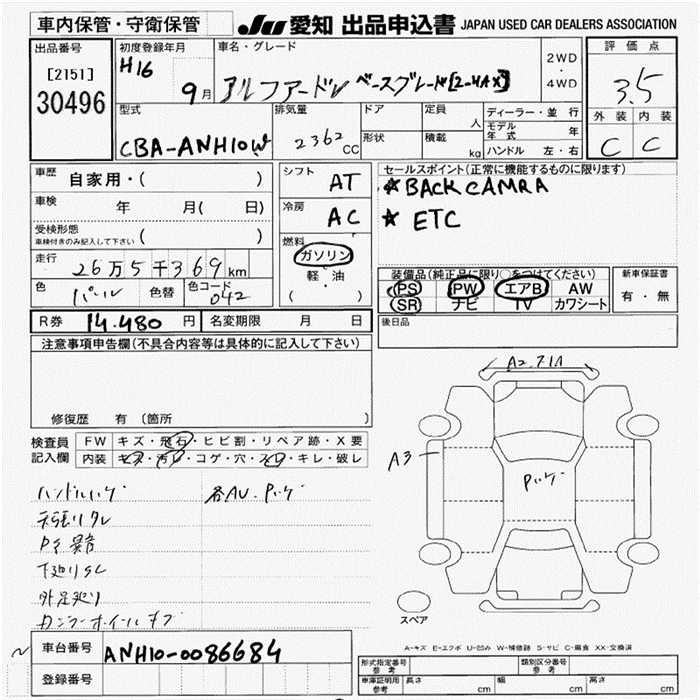 車内保管・守衛保管
JU 愛知 出品申込書 JAPAN USED CAR DEALERS ASSOCIATION
出品番号
[2151]
30496
初度登録年月
H16
9月
車名・グレード
アルファードV ベースグレード[2-4AX]
2WD
・
4WD
評価点
3.5
外装 内装
C C
型式
CBA-ANH10W
排気量
2362
CC
ドア
形状
定員
人
積載
kg
ディーラー・並行
モデル年式 年
ハンドル 左・右
車歴 自家用・( )
車検 年 月( 日)
受検形態
車検付きのみ記入して下さい ( )
走行 26万5千369km
色 パール 色替 色コード 042
シフト AT
冷房 AC
燃料
ガソリン
軽・油
( )
セールスポイント(正常に機能するものに限ります)
★BACK CAMRA
★ ETC
装備品(純正品に限り○をつけてください)
PS PW エアB AW
SR ナビ TV カワシート
新車保証書
有・無
後日品
R券 14.480 円 名変期限 月 日
注意事項申告欄(不具合内容等は具体的に記入して下さい)
修復歴 有 〔箇所 〕
検査員記入欄
FW キズ・飛石・ヒビ割・リペア跡・X要
内装 キズ・汚レ・コゲ・穴・スレ・キレ・破レ
ハンドルハゲ 各AV.Pハゲ
天張リタレ
PS異音
下廻リサビ
外足廻リ
カンラーホイールキズ
A2.フルハ
A3
Pハゲ
スペア
A-キズ E-エクボ U-凹み W-補修跡 S-サビ C-腐食 XX-交換済
車台番号 ANH10-0086684
登録番号
形式指定番号
参考
類別区分番号
参考
車庫証明用
参考
長さ cm 幅 cm 高さ cm